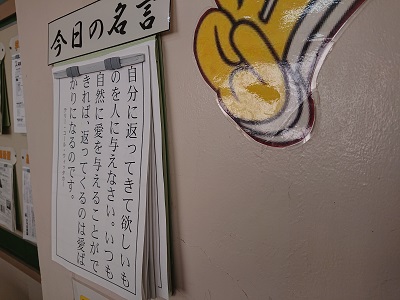 今日の名言
自分に返ってきて欲しいも
のを人に与えなさい。いつも
自然に愛を与えることがで
きれば、返ってくるのは愛ば
かりになるのです。